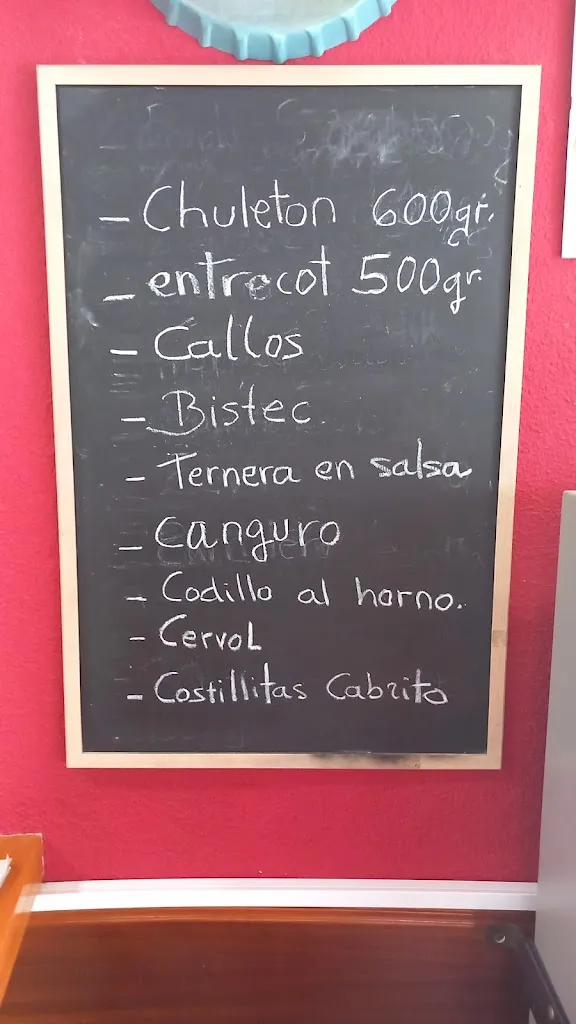 - Chuleton 600gr.
- entrecot 500gr.
- Callos
- Bistec
- Ternera en salsa
- Canguro
- Codillo al horno.
- Cervol
- Costillitas Cabrito